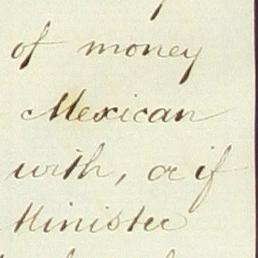 of money
Mexican
with, or if
Minister